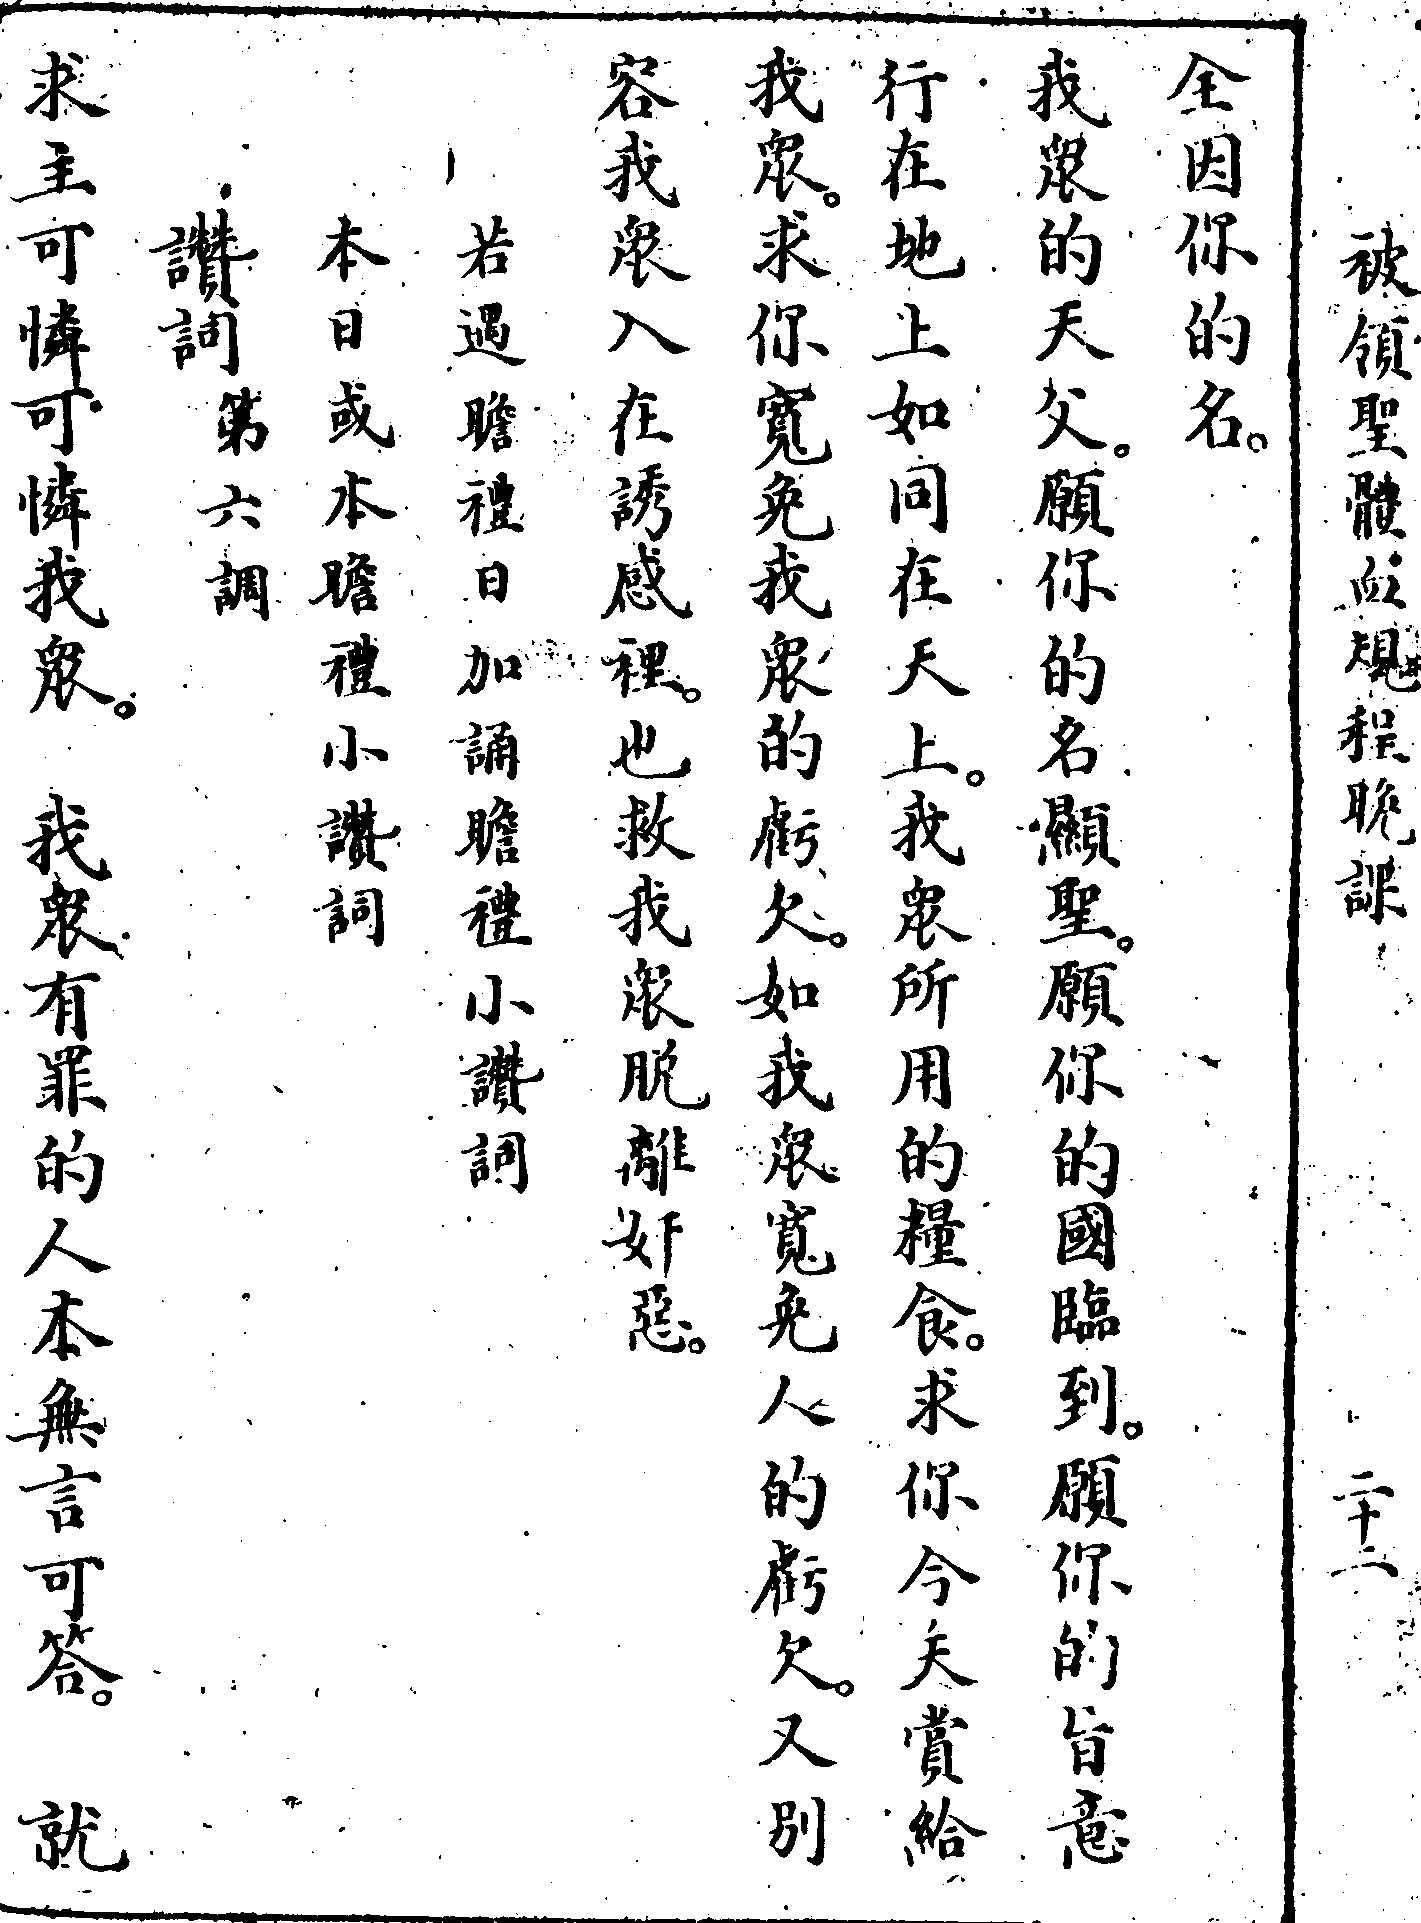 被領聖體血規程晚課 二十二
全因你的名。
我眾的天父。願你的名顯聖。願你的國臨到。願你的旨意
行在地上如同在天上。我眾所用的糧食。求你今天賞給
我眾。求你寬免我眾的虧欠。如我眾寬免人的虧欠。又別
容我眾入在誘惑裡。也救我眾脫離奸惡。
若遇瞻禮日加誦瞻禮小讚詞
本日或本瞻禮小讚詞
讚詞第六調
求主可憐可憐我眾。 我眾有罪的人本無言可答。 就